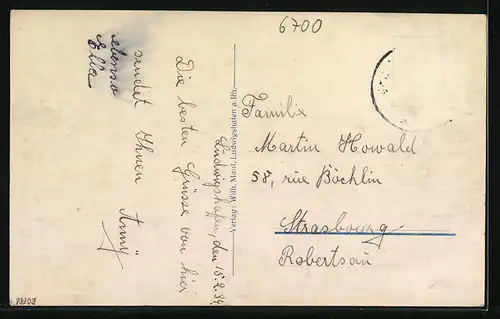 6700
Ludwigshafen, den 15.2.34.
Die besten Grüsse von hier
sendet Ihnen Anny
ebenso
Ella
Verlag: Wilh. Maul, Ludwigshafen a. Rh.
Familie
Martin Howald
58, rue Böchlin
Strasbourg
Robertsau